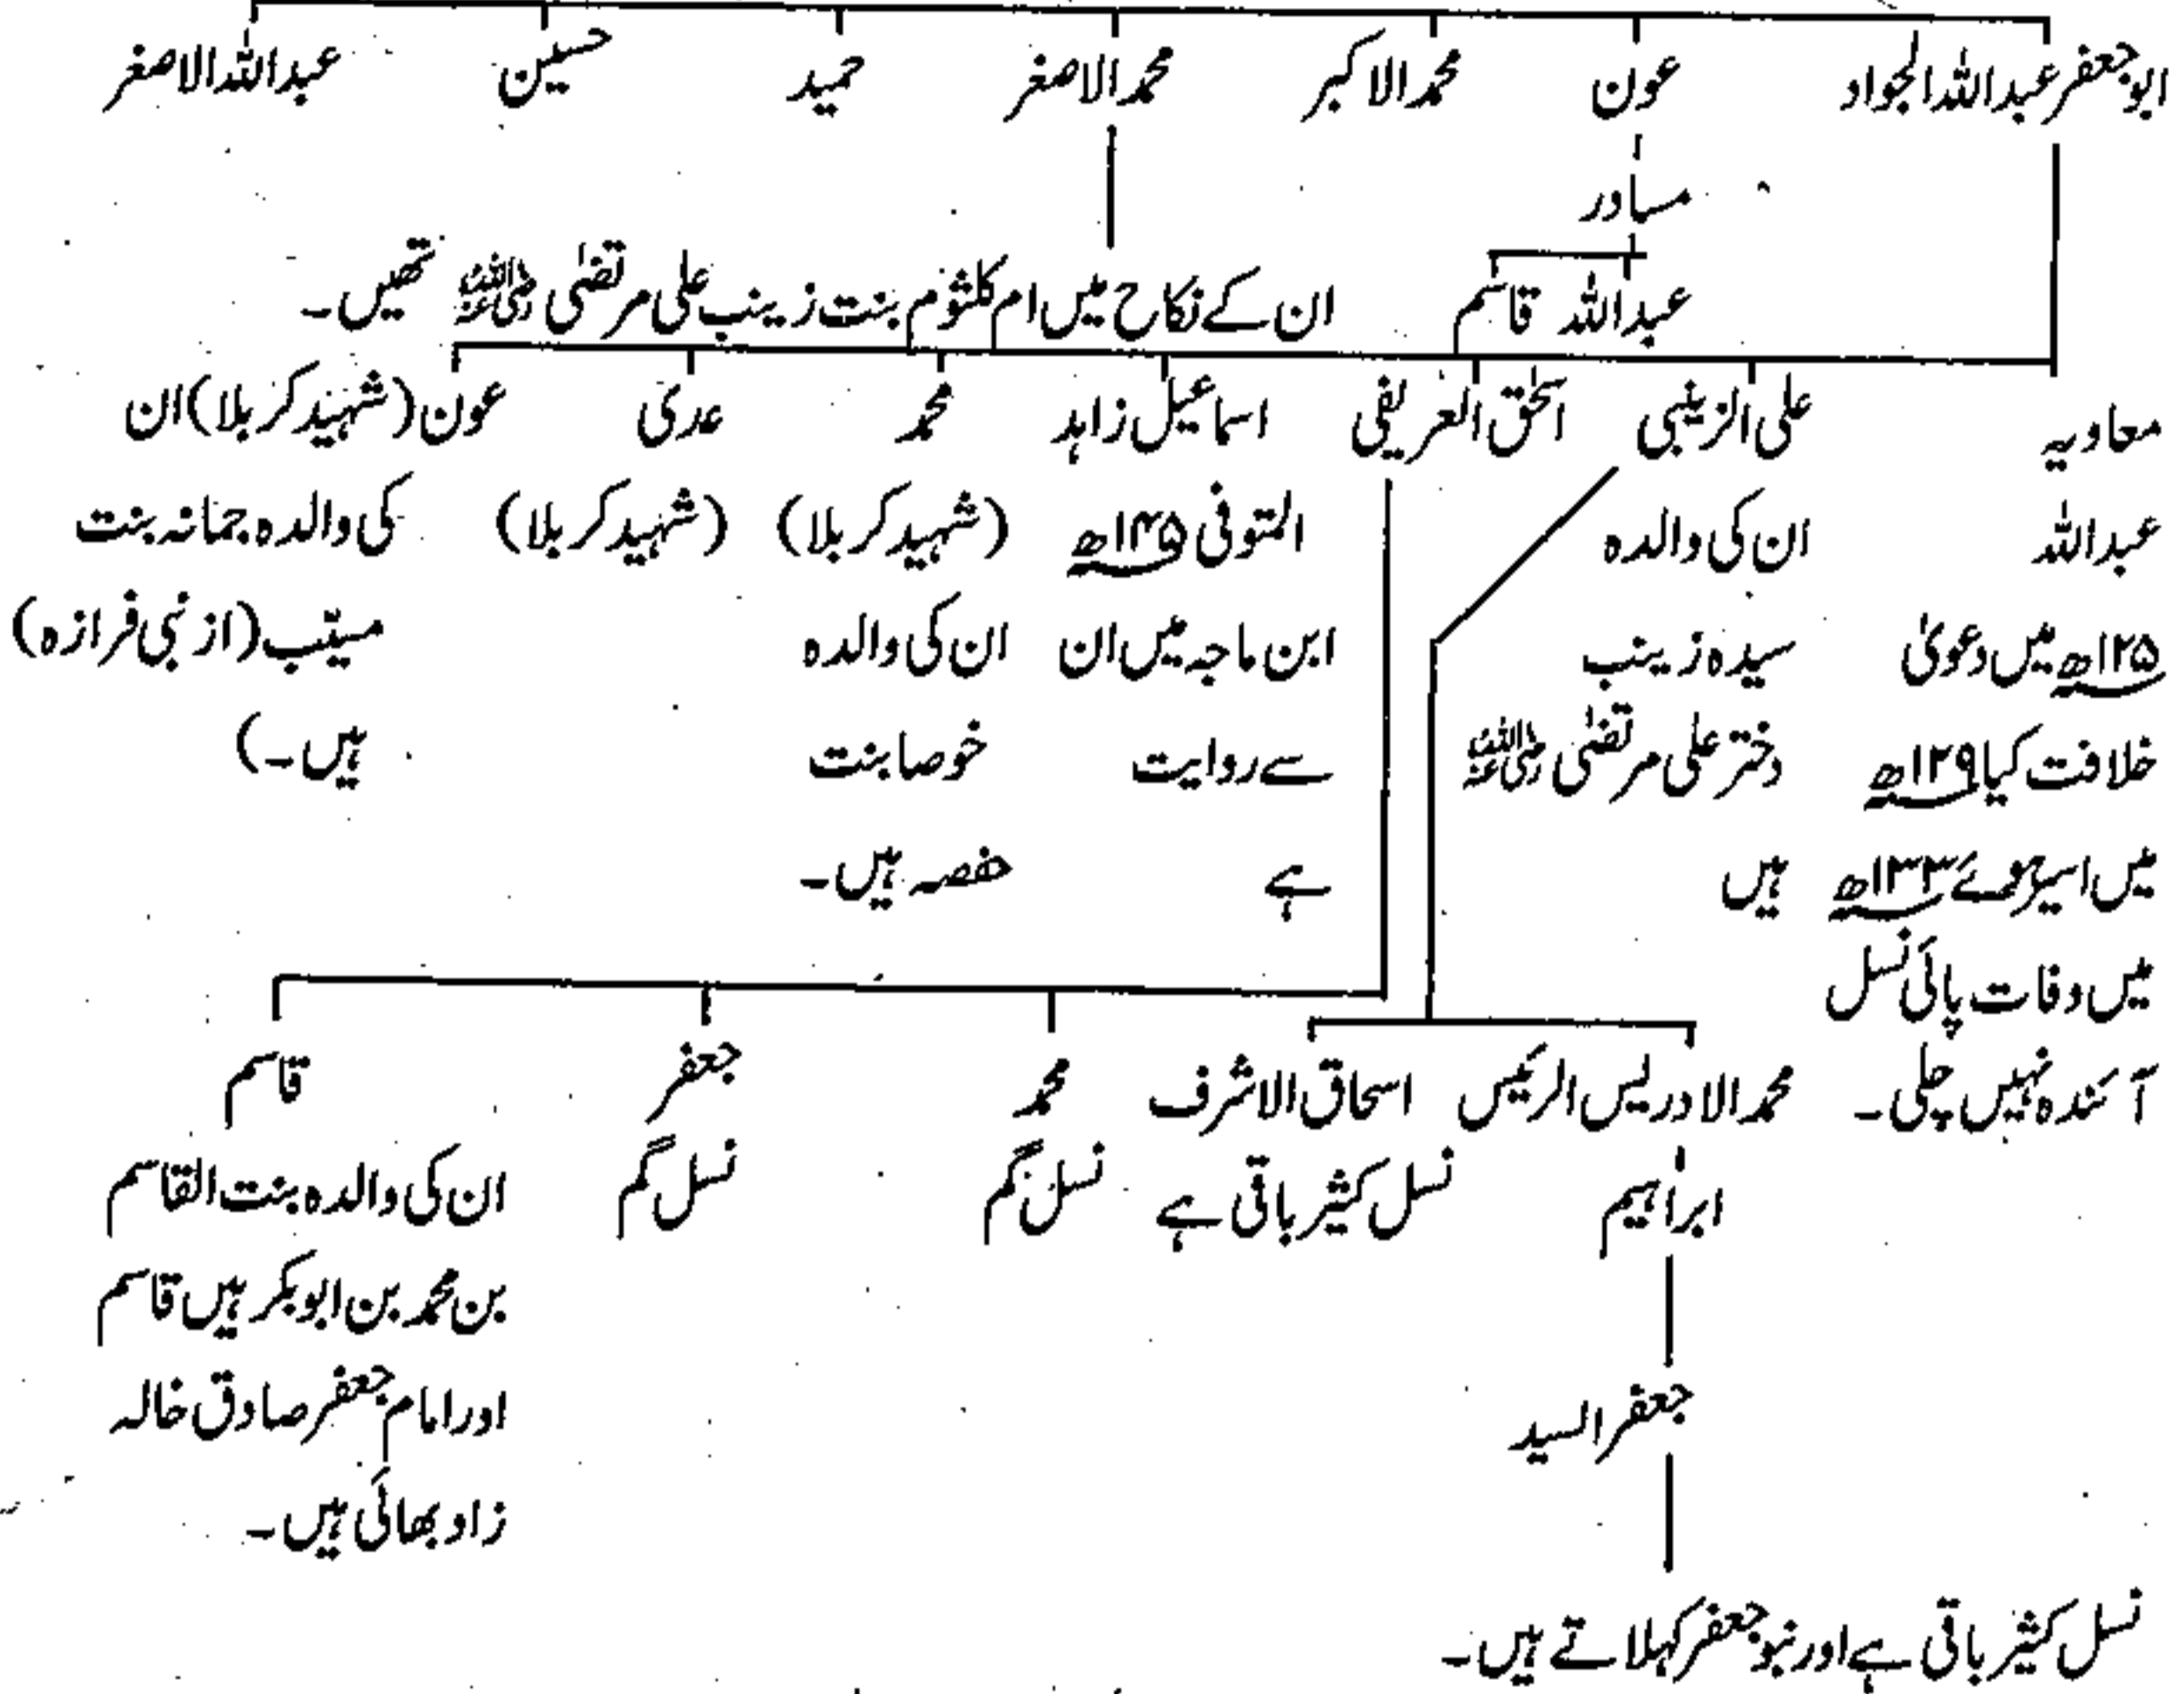 ابوجعفر عبداللہ الجواد عون محمد الاکبر محمد الاصغر حمید حسین عبداللہ الاصغر
مساور
عبداللہ قاسم
ان کے نکاح میں ام کلثوم بنت زینب علی مرتضیٰ رضی اللہ عنہ تھیں۔
معاویہ
عبداللہ
۱۲۵ھ میں دعویٰ
خلافت کیا ۱۲۹ھ
میں اسیر ہوئے ۱۳۳ھ
میں وفات پائی نسل
آئندہ نہیں چلی۔
علی الزینبی
ان کی والدہ
سیدہ زینب
دختر علی مرتضیٰ رضی اللہ عنہ
ہیں
اسحٰق العریفی
اسماعیل زاہد
المتوفی ۱۴۵ھ
ابن ماجہ میں ان
سے روایت
ہے
محمد
(شہید کربلا)
ان کی والدہ
خوصا بنت
حفصہ ہیں۔
عدی
(شہید کربلا)
عون (شہید کربلا) ان
کی والدہ جمانہ بنت
مسیّب (از بنی فرازہ)
ہیں۔)
محمد الادریس الرئیس
ابراہیم
جعفر السید
نسل کثیر باقی ہے اور بنو جعفر کہلاتے ہیں۔
اسحاق الاشرف
نسل کثیر باقی ہے
محمد
نسل گم
جعفر
نسل گم
قاسم
ان کی والدہ بنت القاسم
بن محمد بن ابوبکر ہیں قاسم
اور امام جعفر صادق خالہ
زاد بھائی ہیں۔